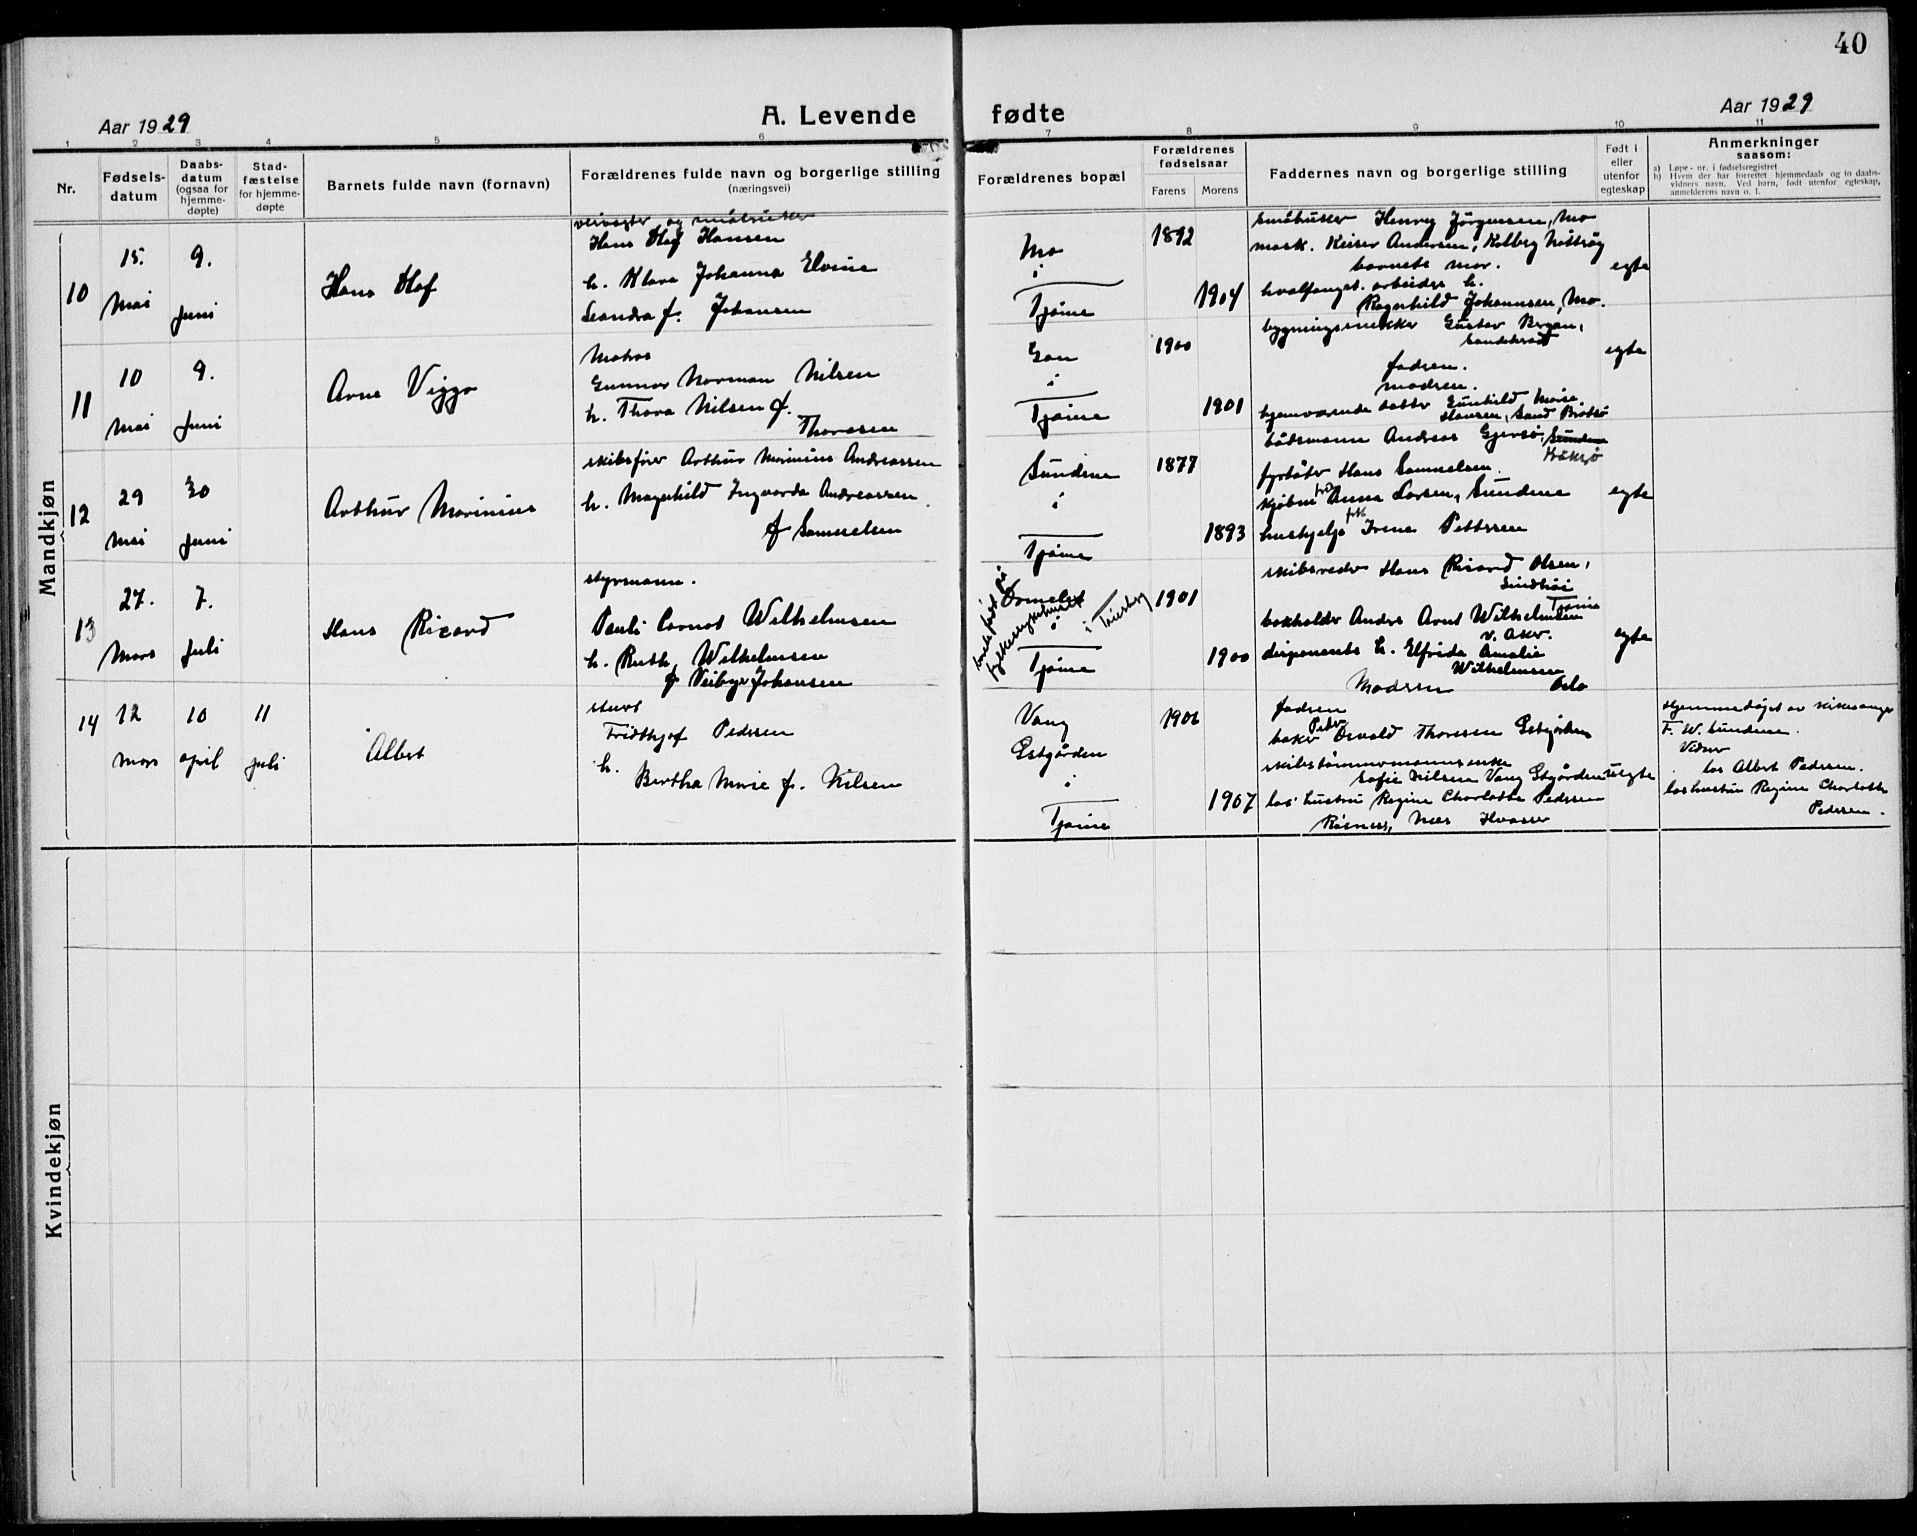 40
Aar 1929
A. Levende fødte
Aar 1929
1 2 3 4 5 6 7 8 9 10 11
Nr.
Fødsels-
datum
Daabs-
datum
(ogsaa for
hjemme-
døpte)
Stad-
fæstelse
for hjemme-
døpte
Barnets fulde navn (fornavn)
Forældrenes fulde navn og borgerlige stilling
(næringsvei)
Forældrenes bopæl
Forældrenes
fødselsaar
Farens
Morens
Faddernes navn og borgerlige stilling
Født i
eller
utenfor
egteskap
Anmerkninger
saasom:
a) Løpe-nr. i fødselsregistret
b) Hvem der har forrettet hjemmedaab og to daabs-
vidners navn. Ved barn, født utenfor egteskap,
anmelderens navn o. l.
Mandkjøn
10
15.
Mai
9.
Juni
Hans Olaf
veivogter og småbruker
Hans Olaf Hansen
h. Klara Johanna Elvine
Leandra f. Johansen
Mo
i
Tjøme
1892
1904
småbruker Henry Jørgensen, Mo
mask. Keiser Andersen, Kolberg Nøtterøy
barnets mor.
hvalfangst. arbeider h.
Ragnhild Johannsen, Mo.
egte
11
10
mai
9.
Juni
Arne Viggo
Matros
Gunnar Norman Nilsen
h. Thora Nilsen f.
Thoresen
Gon
i
Tjøme
1900
1901
bygningssnekker Gustav Bergan,
Sandefjord
fadren.
modren.
hjemværende datter Gunhild Marie
Hansen, Sand Brøtsø
egte
12
29
mai
30
Juni
Arthur Marinius
skibsfører Arthur Marinius Andreassen
h. Magnhild Ingvarda Andreassen
f Samuelsen
Sundene
i
Tjøme
1877
1893
båtsmann Andreas Gjersø, Sundene
fyrbøter Hans Samuelsen.
kjøbm. fru Anna Larsen, Sundene
hushjelp frk Irene Pettersen
egte
13
27.
Mars
7.
Juli
Hans Ricard
styrmann.
Pauli Carnot Wilhelmsen
h. Ruth Wilhelmsen
f Veibye Johansen
Ormelet
i
Tjøme
barnet født på
fylkessykehuset
i Tønsberg
1901
1900
skibsreder Hans Ricard Olsen,
Tjøme
bokholder Anders Arnt Wilhelmsen
v. Aker.
disponents h. Elfrida Amalie
Wilhelmsen
Oslo
Modren
egte
14
12
mars
10
april
11
juli
Albert
stuert
Fridthjof Pedersen
h.
Bertha Marie f. Nilsen
Vang
Estgården
i
Tjøme
1906
1907
fadren
baker Peder Osvald Thoresen Estgården
skibstømmermannsenke
Sofie Nilsen Vang Estgården
los' hustru Regine Charlotte Pedersen
Røsnes, Nes Hvasser
uegte
Hjemmedøpt av kirkesanger
F. W. Sundene.
Vidner
los Albert Pedersen.
los hustru Regine Charlotte
Pedersen.
Kvindekjøn